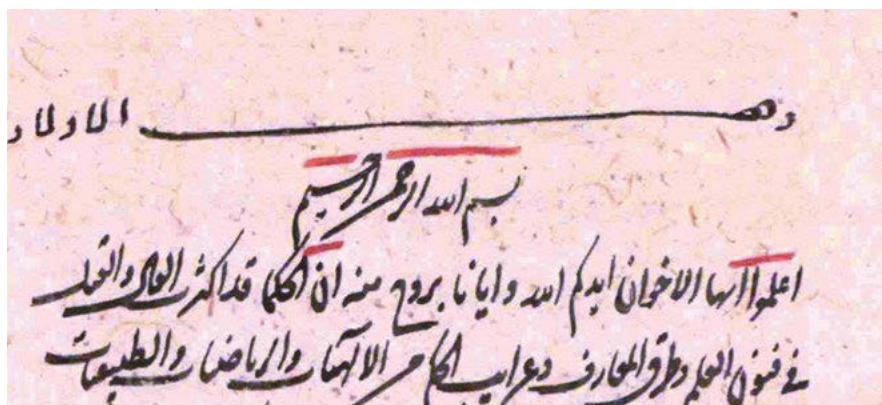 وهـ الاولاد
بسم الله الرحمن الرحيم
اعلموا ايها الاخوان ايدكم الله وايانا بروح منه ان الحكما قد اكثرت القال والقيل
في فنون العلم وطرق المعارف وغرايب الحكم من الالهيات والرياضيات والطبيعيات